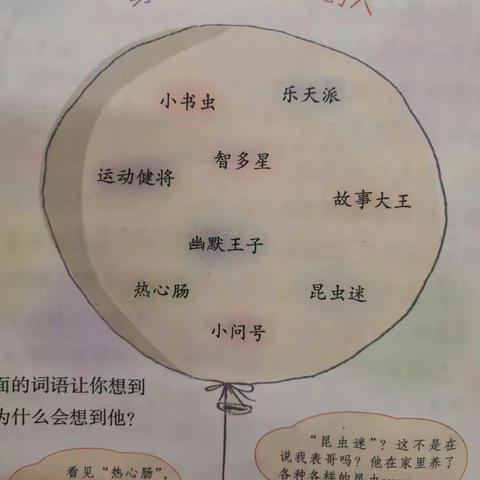 小书虫
乐天派
智多星
运动健将
故事大王
幽默王子
热心肠
昆虫迷
小问号
面的词语让你想到
为什么会想到他？
“昆虫迷”？这不是在
说我表哥吗？他在家里养了
各种各样的昆虫……
看见“热心肠”，